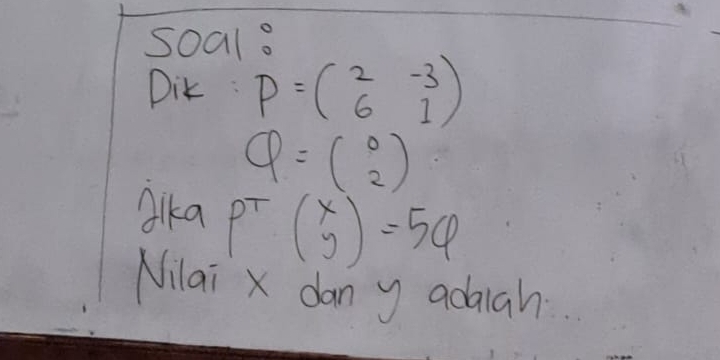 Soal :
Dik : P = ( 2 -3
6 1 )
Q = ( 0
2 )
Jika Pᵀ ( x
y ) = 5Q
Nilai x dan y adalah...